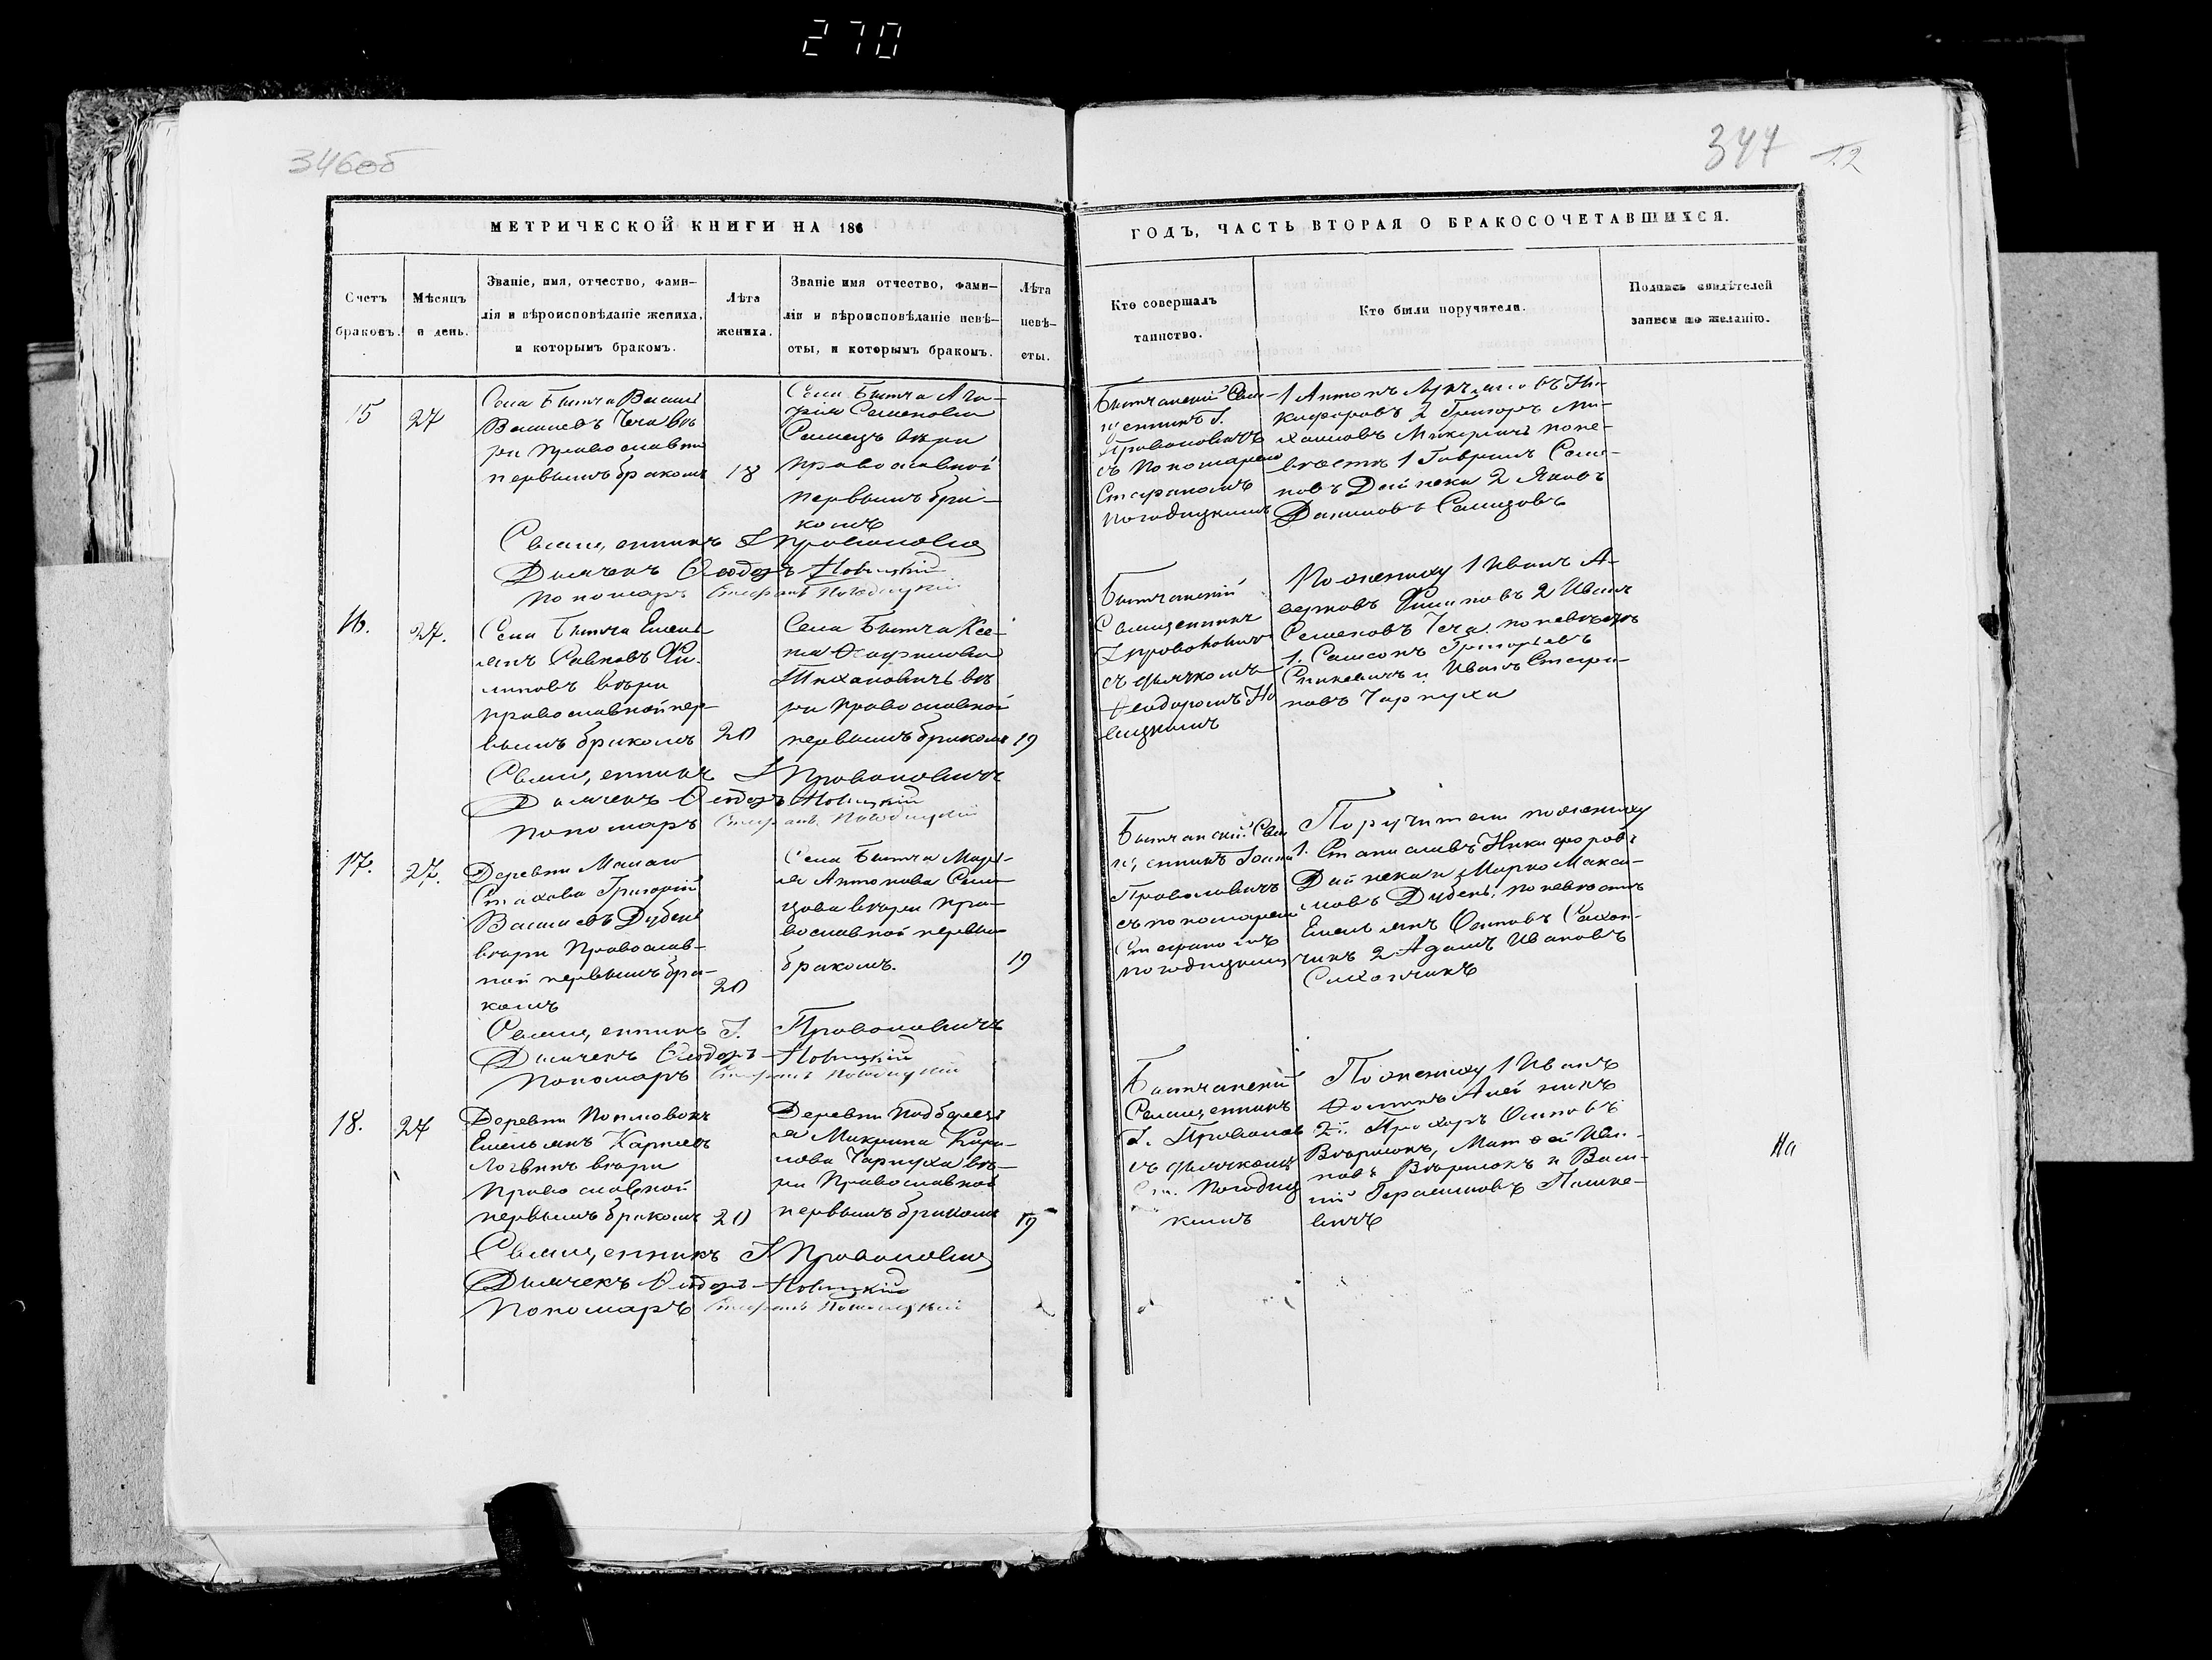 270
346об
347
12
МЕТРИЧЕСКОЙ КНИГИ НА 186
ГОДЪ, ЧАСТЬ ВТОРАЯ О БРАКОСОЧЕТАВШИХСЯ.
Счетъ
браковъ.
Мѣсяцъ
и день.
Званіе, имя, отчество, фами-
лія и вѣроисповѣданіе жениха,
и которымъ бракомъ.
Лѣта
жениха.
Званіе имя отчество, фами-
лія и вѣроисповѣданіе невѣ-
сты, и которымъ бракомъ.
Лѣта
невѣ-
сты.
Кто совершалъ
таинство.
Кто были поручители.
Подпись свидѣтелей
записи по желанію.
15
27
Села Бытча Васили
Василевъ Чечавѣ
ри православно
первымъ бракомъ
18
Села Бытча Ага-
Семенова
вѣри
православной
первымъ бра-
комъ
Бытчанскій Свя-
щенникъ І.
Проволовичъ
съ Пономаремъ
Стефаномъ
Погодицкимъ
1 Антонъ Ни-
кифоровъ 2 Григоръ Ми-
хаиловъ поне-
вѣстѣ 1 Гаврилъ Семе-
новъ Дейнека 2 Яковъ
Даниловъ
Священникъ І Проволовичъ
Дьячекъ Ѳеодоръ Новицкій
Пономаръ Стефанъ Погодицкій
16.
27.
Села Бытча Емель-
янъ Савковъ Фи-
липовъ вѣри
православной пер-
вымъ бракомъ
20
Села Бытча Ксе-
ния
Тихановичъ вѣ
ри православной
первымъ бракомъ
19
Бытчанскій
Священникъ
І Проволовичъ
съ дьячкомъ
Ѳеодоромъ Но
вицкимъ
По жениху 1 Иванъ А-
Филиповъ 2 Иванъ
Семеновъ Чеча. по невѣстѣ
1. Самсонъ Григорьевъ
и Иванъ Стефа-
новъ Чарнуха
Священникъ І Проволовичъ
Дьячекъ Ѳеодоръ Новицкій
Пономаръ Стефанъ Погодицкій
17.
27.
Деревни Малаго
Стахова Григорій
Василевъ Дубень
вѣри Православ-
ной первымъ бра-
комъ
20
Села Бытча
Антонова
вѣри пра-
вославной первым
бракомъ.
19
Бытчанскій Свя
щенникъ
Проволовичъ
съ пономаремъ
Стефаномъ
Погодицкимъ
Поручители по жениху
1. Станиславъ Никифоровъ
Дейнека и Марко Макси-
мовъ Дубень. по невѣстѣ
Емельянъ Осиповъ
2 Адамъ Ивановъ
Священникъ І. Проволовичъ
Дьячекъ Ѳеодоръ Новицкій
Пономаръ Стефанъ Погодицкій
18.
27
Деревни
Емельянъ Карпиевъ
Логвинъ вѣри
Православной
первымъ бракомъ
20
Деревни Подберезь
я Макрина Кири-
лова Чарнуха вѣ-
ри Православной
первымъ бракомъ
19
Бытчанскій
Священникъ
І. Проволов
съ дьячкомъ
Погодиц
кимъ
По жениху 1 Иванъ
2. Прохоръ Осиповъ
Матѳей Ива-
новъ и Васи-
лій Герасимовъ Пашке-
вичъ
На
Священникъ І Проволовичъ
Дьячекъ Ѳеодоръ Новицкій
Пономаръ Стефанъ Погодицкій